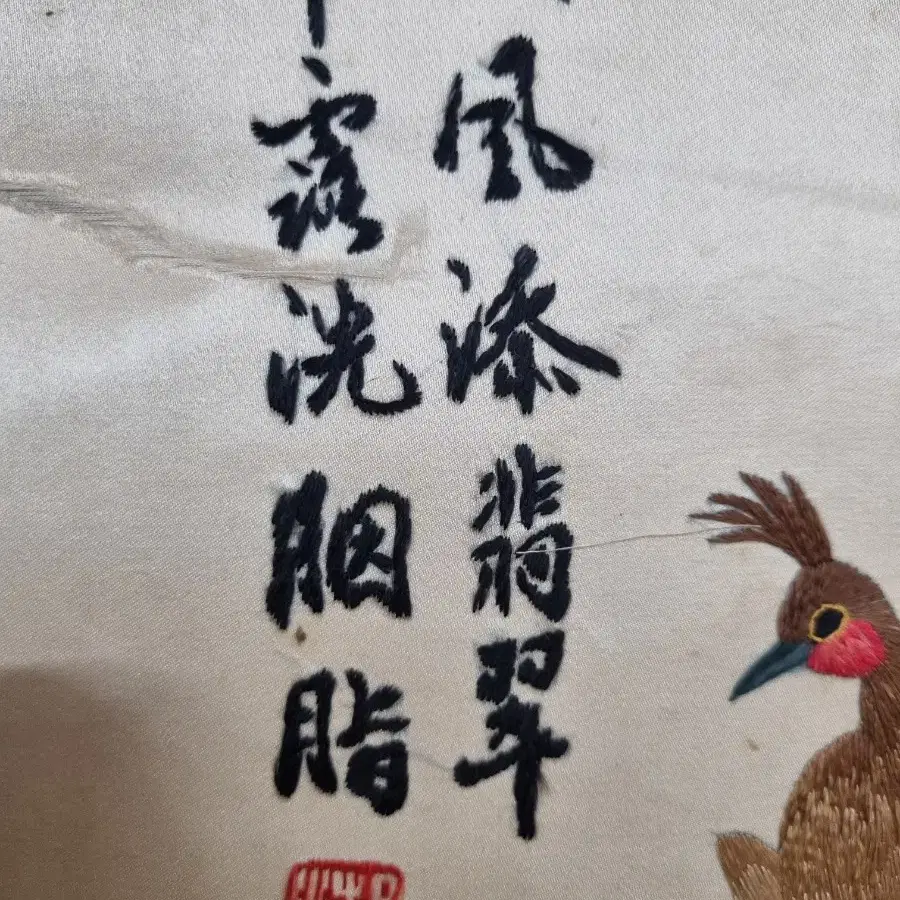 風添翡翠
露洗胭脂